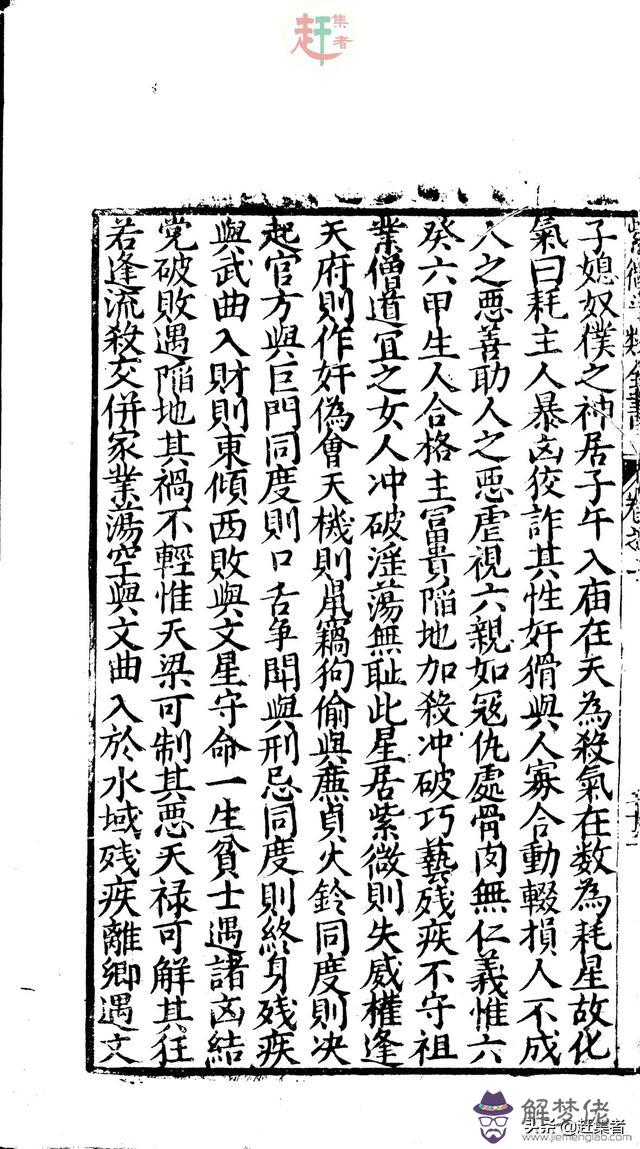 赶集者
子媳奴僕之神居子午入庙在天為殺氣在数為耗星故化
氣曰耗主人暴凶狡詐其性奸猾與人寡合動輟損人不成
人之惡善助人之惡虐視六親如寇仇處骨肉無仁義惟六
癸六甲生人合格主冨貴陥地加殺冲破巧藝残疾不守祖
業僧道宜之女人冲破淫荡無耻此星居紫微則失威權逢
天府則作奸偽會天機則鼠竊狗偷與廉貞火鈴同度則决
起官方與巨門同度則口舌争閗與刑忌同度則終身残疾
與武曲入財則東傾西敗與文星守命一生貧士遇諸凶結
党破敗遇陥地其禍不輕惟天梁可制其惡天禄可解其狂
若逢流殺交併家業荡空與文曲入於水域残疾離鄉遇文
解梦佬
www.jiemenglao.com
头条@赶集者